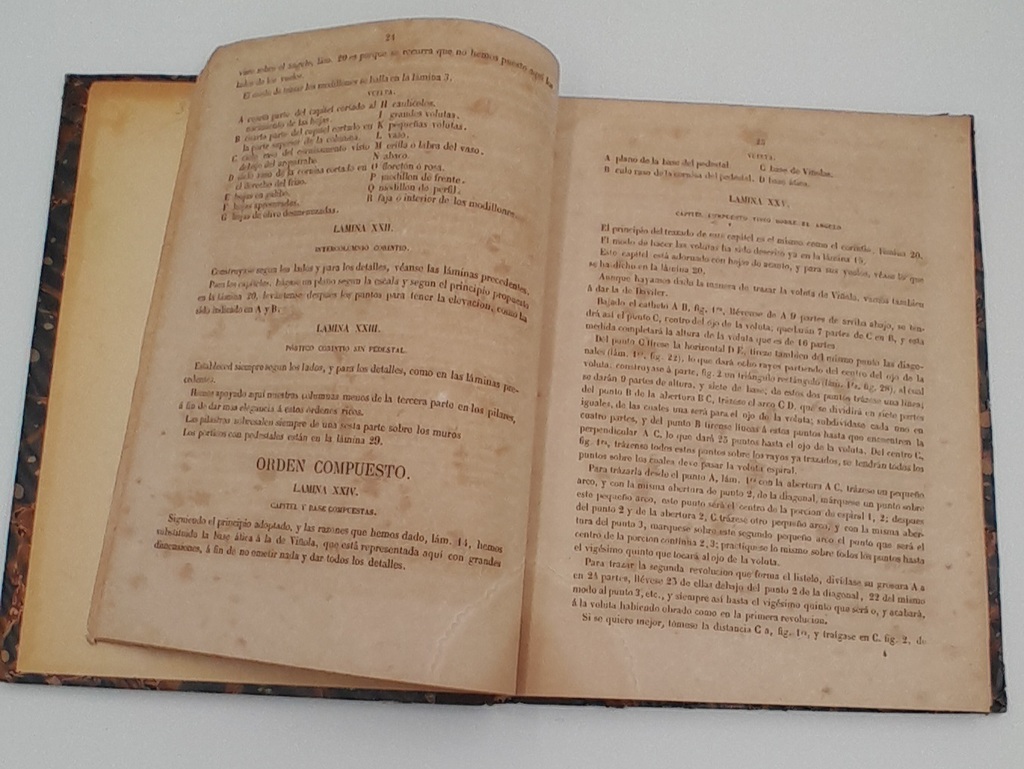 24
vuelo sobre el ángelo, lám. 20 es porque se recurra que no hemos puesto aquí los
lados de los vuelos.
El modo de trazar los modillones se halla en la lámina 3.
VUELTA.
A cuarta parte del capitel cortado al
nacimiento de las hojas.
B cuarta parte del capitel cortado en
la parte superior de la columna.
C cielo raso del cornisamento visto
debajo del arquitrabe.
D cielo raso de la cornisa cortado en
el derecho del friso.
E hojas en galibo.
F hojas apeonadas.
G hojas de olivo desmenuzadas.
H caulicolos.
I grandes volutas.
K pequeñas volutas.
L vaso.
M orilla o labra del vaso.
N abaco.
O floretón ó rosa.
P modillon de frente.
Q modillon de perfil.
R faja ó interior de los modillones.
LÁMINA XXII.
INTERCOLUMNIO CORINTIO.
Construyase segun los lados y para los detalles, véanse las láminas precedentes.
Para los capiteles, hágase un plano segun la escala y segun el principio propuesto
en la lámina 20, levántense despues los puntos para tener la elevacion, como ha
sido indicado en A y B.
LAMINA XXIII.
PÓRTICO CORINTIO SIN PEDESTAL.
Estableced siempre segun los lados, y para los detalles, como en las láminas pre-
cedentes.
Hemos apoyado aqui nuestras columnas menos de la tercera parte en los pilares,
á fin de dar mas elegancia á estos órdenes ricos.
Las pilastras sobresalen siempre de una sesta parte sobre los muros
Los porticos con pedestales están en la lámina 29.
ORDEN COMPUESTO.
LAMINA XXIV.
CAPITEL Y BASE COMPUESTAS.
Siguiendo el principio adoptado, y las razones que hemos dado, lám. 14, hemos
substituido la base ática à la de Viñola, que está representada aqui con grandes
dimensiones, á fin de no omitir nada y dar todos los detalles.
25
VUELTA.
A plano de la base del pedestal.
B cielo raso de la cornisa del pedestal.
C base de Viñolas.
D base ática.
LAMINA XXV.
CAPITEL COMPUESTO VISTO SOBRE EL ANGELO
El principio del trazado de este capitel es el mismo como el corintio, lámina 20.
El modo de hacer las volutas ha sido descrito ya en la lámina 15.
Este capitel está adornado con hojas de acanto, y para sus vuelos, véase lo que
se ha dicho en la lámina 20.
Aunque hayamos dado la manera de trazar la voluta de Viñola, vamos tambien
á dar la de
Bajado el catheto A B, fig. 1ra, llévense de A 9 partes de arriba abajo, se ten-
drá asi el punto C, centro del ojo de la voluta; quedarán 7 partes de C en B, y esta
medida completará la altura de la voluta que es de 16 partes
Del punto C tírese la horizontal D E, tírense tambien del mismo punto las diago-
nales (lám. 1ra, fig. 22), lo que dará ocho rayos partiendo del centro del ojo de la
voluta; construyase á parte, fig. 2 un triángulo rectángulo (lám. 1ra, fig. 28), al cual
se darán 9 partes de altura, y siete de base; de estos dos puntos trázese una línea;
del punto B de la abertura B C, trázese el arco C D, que se dividirá en siete partes
iguales, de las cuales una será para el ojo de la voluta; subdividase cada uno en
cuatro partes, y del punto B tírense líneas á estos puntos hasta que encuentren la
perpendicular A C, lo que dará 25 puntos hasta el ojo de la voluta. Del centro C,
fig. 1ra, trázense todos estos puntos sobre los rayos ya trazados, se tendrán todos los
puntos sobre los cuales debe pasar la voluta espiral.
Para trázarla desde el punto A, lám. 1ra con la abertura A C, trázese un pequeño
arco, y con la misma abertura de punto 2, de la diagonal, márquese un punto sobre
este pequeño arco, este punto será el centro de la porcion de espiral 1, 2; despues
del punto 2 y de la abertura 2, C trázese otro pequeño arco, y con la misma aber-
tura del punto 3, marquese sobre este segundo pequeño arco el punto que será el
centro de la porcion continua 2, 3; practíquese lo mismo sobre todos los puntos hasta
el vigésimo quinto que tocará al ojo de la voluta.
Para trazar la segunda revolucion que forma el listelo, dividase su grosura A a
en 25 partes, llévese 23 de ellas debajo del punto 2 de la diagonal, 22 del mismo
modo al punto 3, etc., y siempre asi hasta el vigésimo quinto que será o, y acabará,
á la voluta habiendo obrado como en la primera revolucion.
Si se quiere mejor, tómese la distancia C a, fig. 1ra, y tráigase en C. fig. 2. de
4